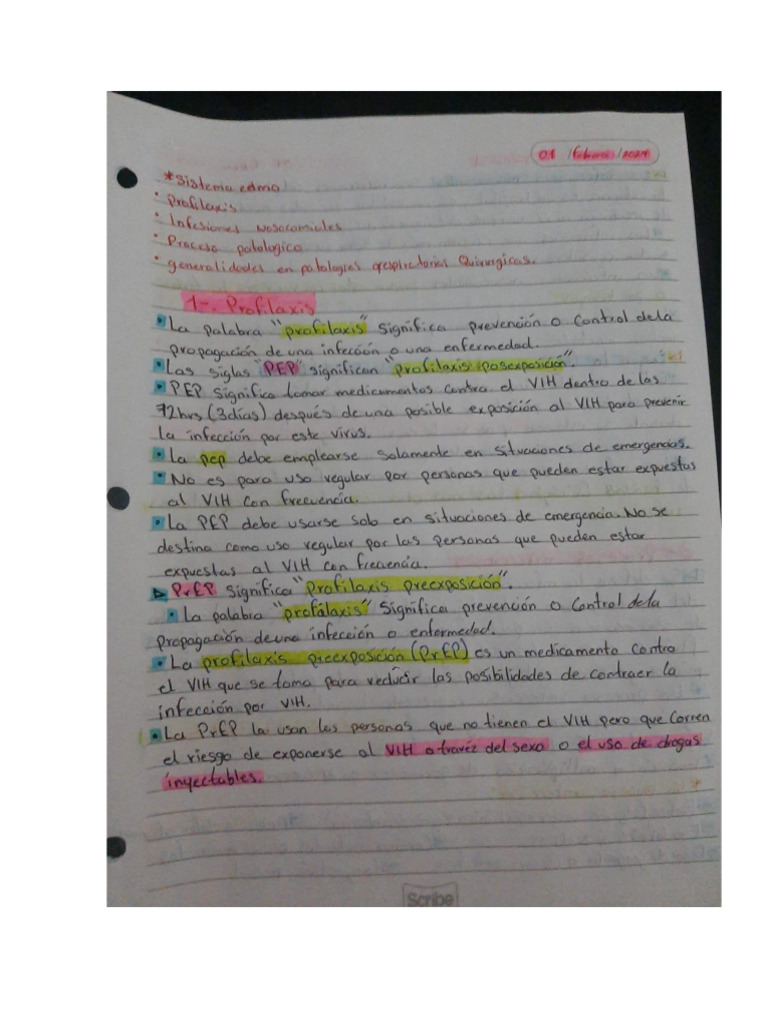 01 / febrero / 2024
* Sistema edmo
• Profilaxis
• Infesiones Nosocomiales
• Proceso patologico
• generalidades en patologias Quirurgicas.
1-. Profilaxis
• La palabra "profilaxis" significa prevención o control dela
propagación de una infección o una enfermedad.
• Las siglas "PEP" significan "profilaxis posexposición".
• PEP significa tomar medicamentos contra el VIH dentro de las
72hrs (3días) después de una posible exposición al VIH para prevenir
la infección por este virus.
• La pep debe emplearse solamente en situaciones de emergencias.
• No es para uso regular por personas que pueden estar expuestas
al VIH con frecuencia.
• La PEP debe usarse solo en situaciones de emergencia. No se
destina como uso regular por las personas que pueden estar
expuestas al VIH con frecuencia.
▷ PrEP significa "Profilaxis preexposición".
• La palabra "profálaxis" significa prevención o control dela
propagación deuna infección o enfermedad.
• La profilaxis preexposición (PrEP) es un medicamento contra
el VIH que se toma para reducir las posibilidades de contraer la
infección por VIH.
• La PrEP la usan las personas que no tienen el VIH pero que corren
el riesgo de exponerse al VIH a travéz del sexo o el uso de drogas
inyectables.
Scribe